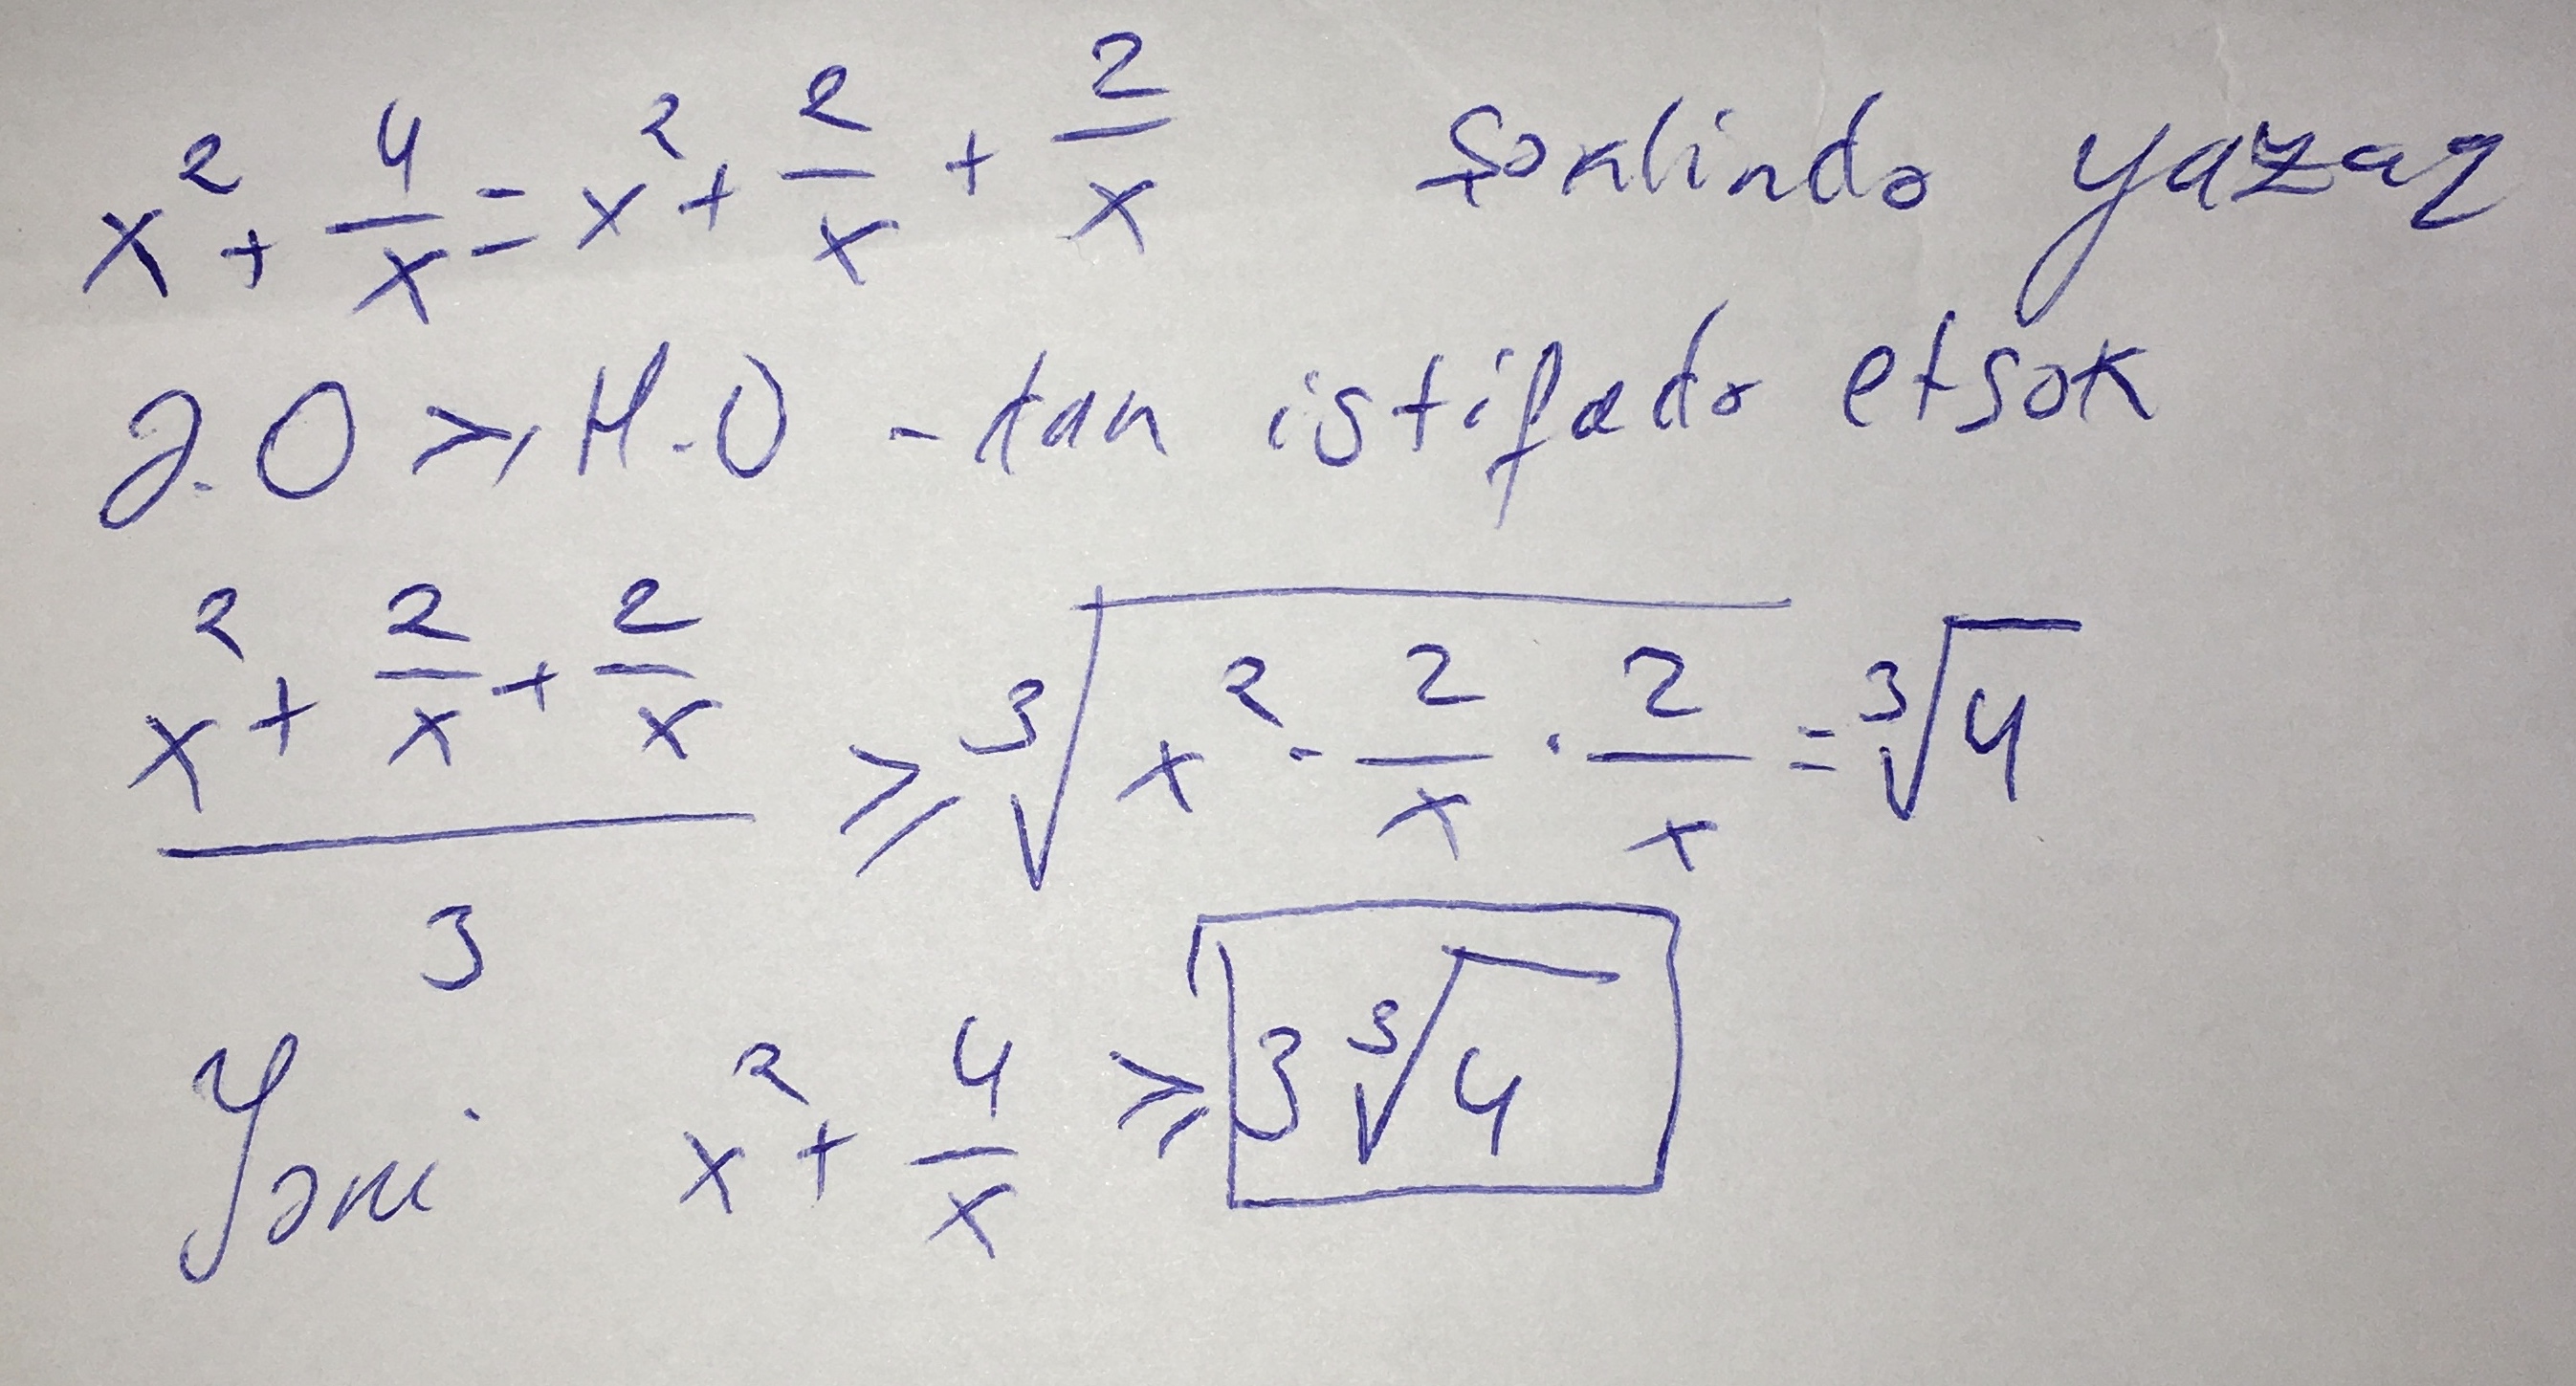 x² + 4/x = x² + 2/x + 2/x şəklində yazaq
Ə.O ≥ H.O - dan istifadə etsək
(x² + 2/x + 2/x)/3 ≥ ³√(x² · 2/x · 2/x) = ³√4
Yəni x² + 4/x ≥ 3³√4